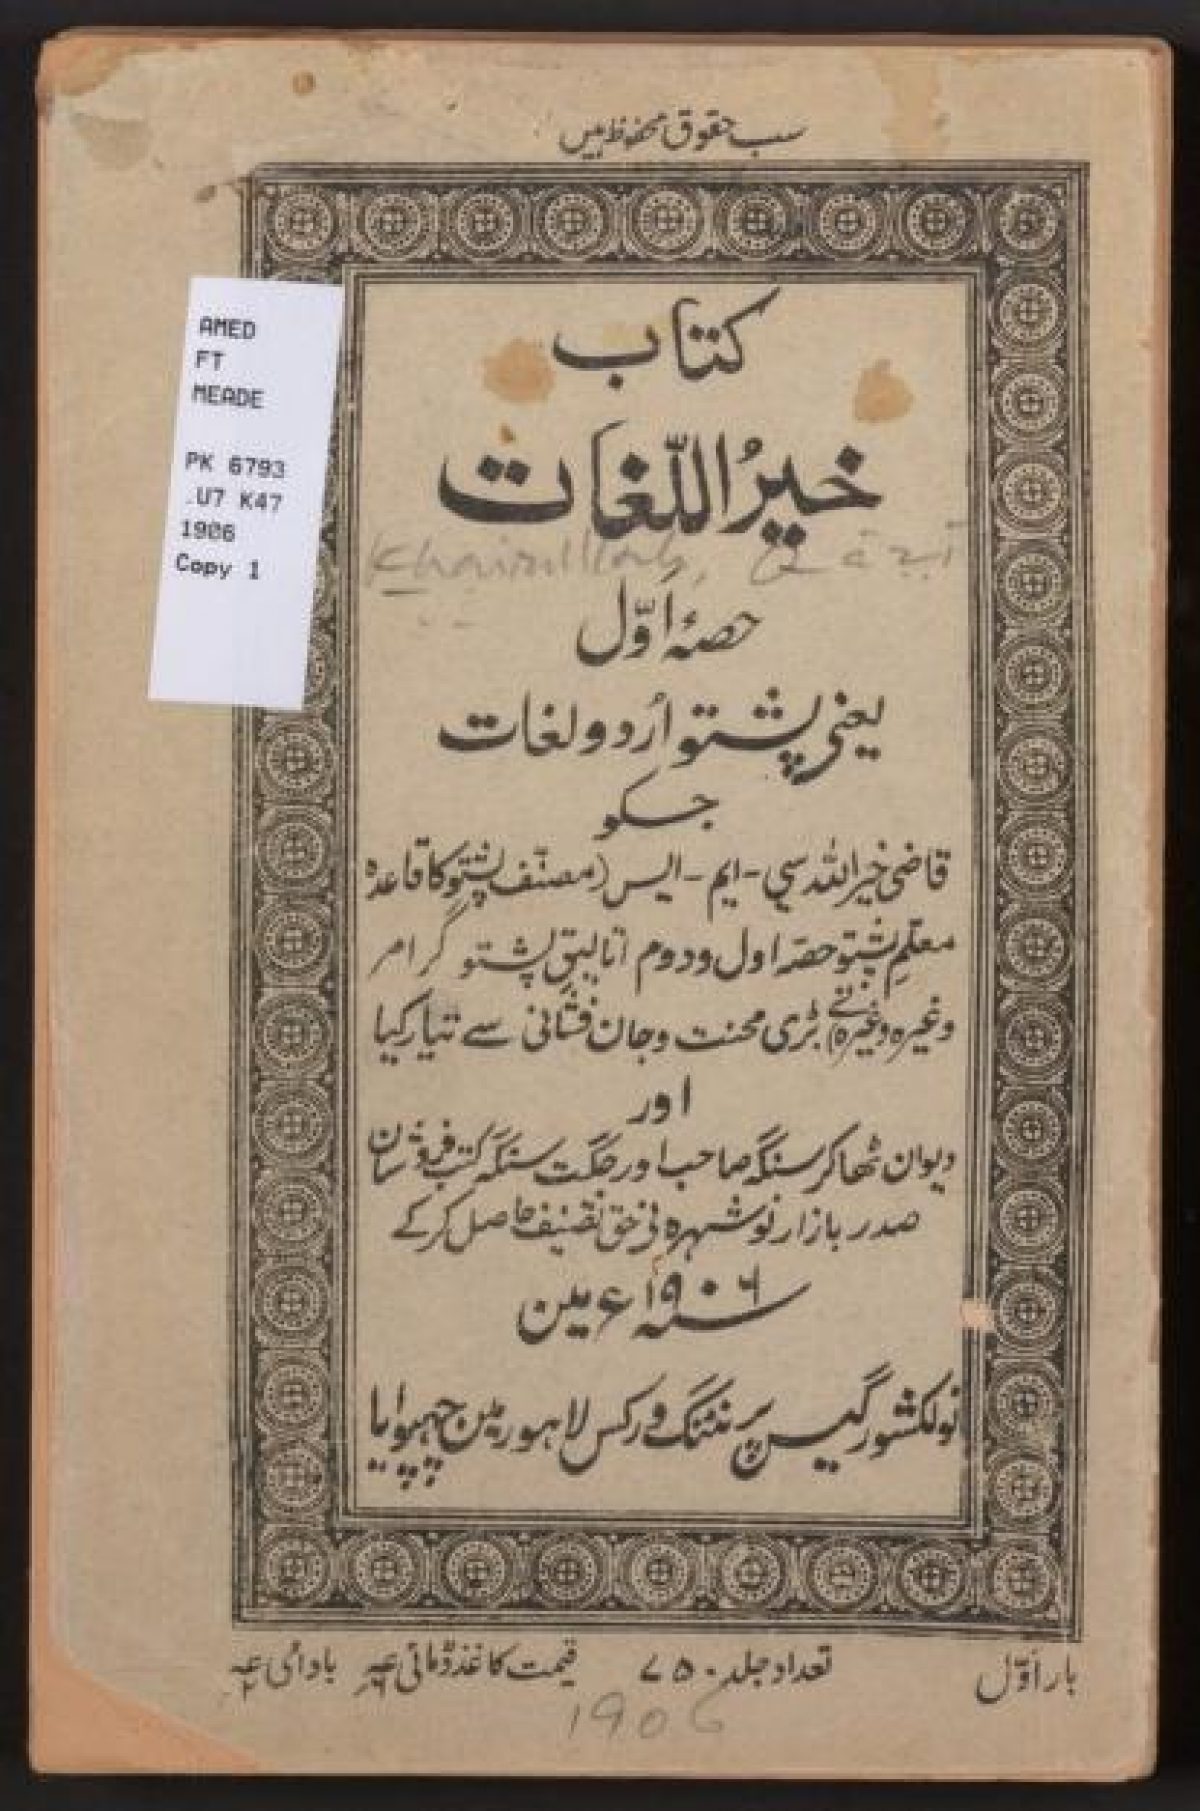 سب حقوق محفوظ ہیں
کتاب
خیرُ اللّغات
Khairullah,
حصۂ اَوّل
یعنی پشتو اُردو لغات
جسکو
قاضی خیر اللہ سی - ایم - ایس (مصنّف پشتو کا قاعدہ
معلمِ پشتو حصّہ اول و دوم اتالیقِ پشتو گرامر
وغیرہ وغیرہ) نے بڑی محنت و جان فشانی سے تیار کیا
اور
دیوان ٹھاکر سنگہ صاحب اور جگت سنگہ کتب فروشان
صدر بازار نوشہرہ نی حق تصنیف حاصل کر کے
سنہ ۱۹۰۶ء مین
نولکشور گیس پرنٹنگ ورکس لاہور مین چھپوایا
بار اَوّل
تعداد جلد ۷۵۰
قیمت کاغذ ولائتی
بادامی
1906
AMED
FT
MEADE
PK 6793
.U7 K47
1906
Copy 1